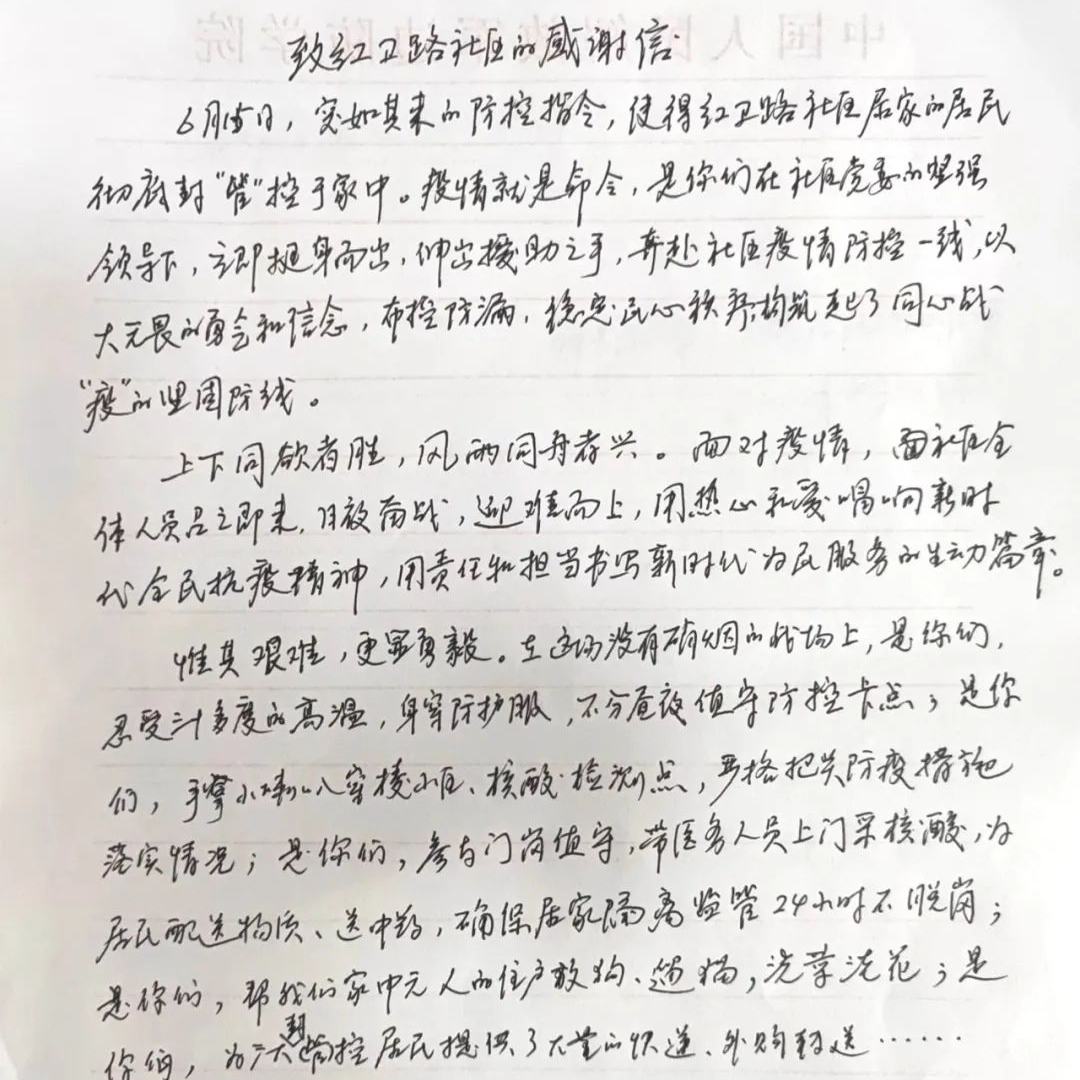 致红卫路社区的感谢信
6月15日，突如其来的防控指令，使得红卫路社区居家的居民
彻底封“管”控于家中。疫情就是命令，是你们在社区党委的坚强
领导下，立即挺身而出，伸出援助之手，奔赴社区疫情防控一线，以
大无畏的勇气和信念，布控防漏，稳定民心，构筑起了同心战
“疫”的坚固防线。
上下同欲者胜，风雨同舟者兴。面对疫情，社区全
体人员立即来，日夜奋战，迎难而上，用热心和爱唱响新时
代全民抗疫精神，用责任和担当书写新时代为民服务的生动篇章。
惟其艰难，更显勇毅。在这场没有硝烟的战场上，是你们，
忍受三十多度的高温，身穿防护服，不分昼夜值守防控卡点；是你
们，手拿小喇叭穿楼小区、核酸检测点，严格把关防疫措施
落实情况；是你们，参与门岗值守，带医务人员上门采核酸，为
居民配送物质、送中药，确保居家隔离监管24小时不脱岗；
是你们，帮我们家中无人的住户救狗、遛猫，浇菜浇花；是
你们，为封控居民提供了大量的快递、外购封送……